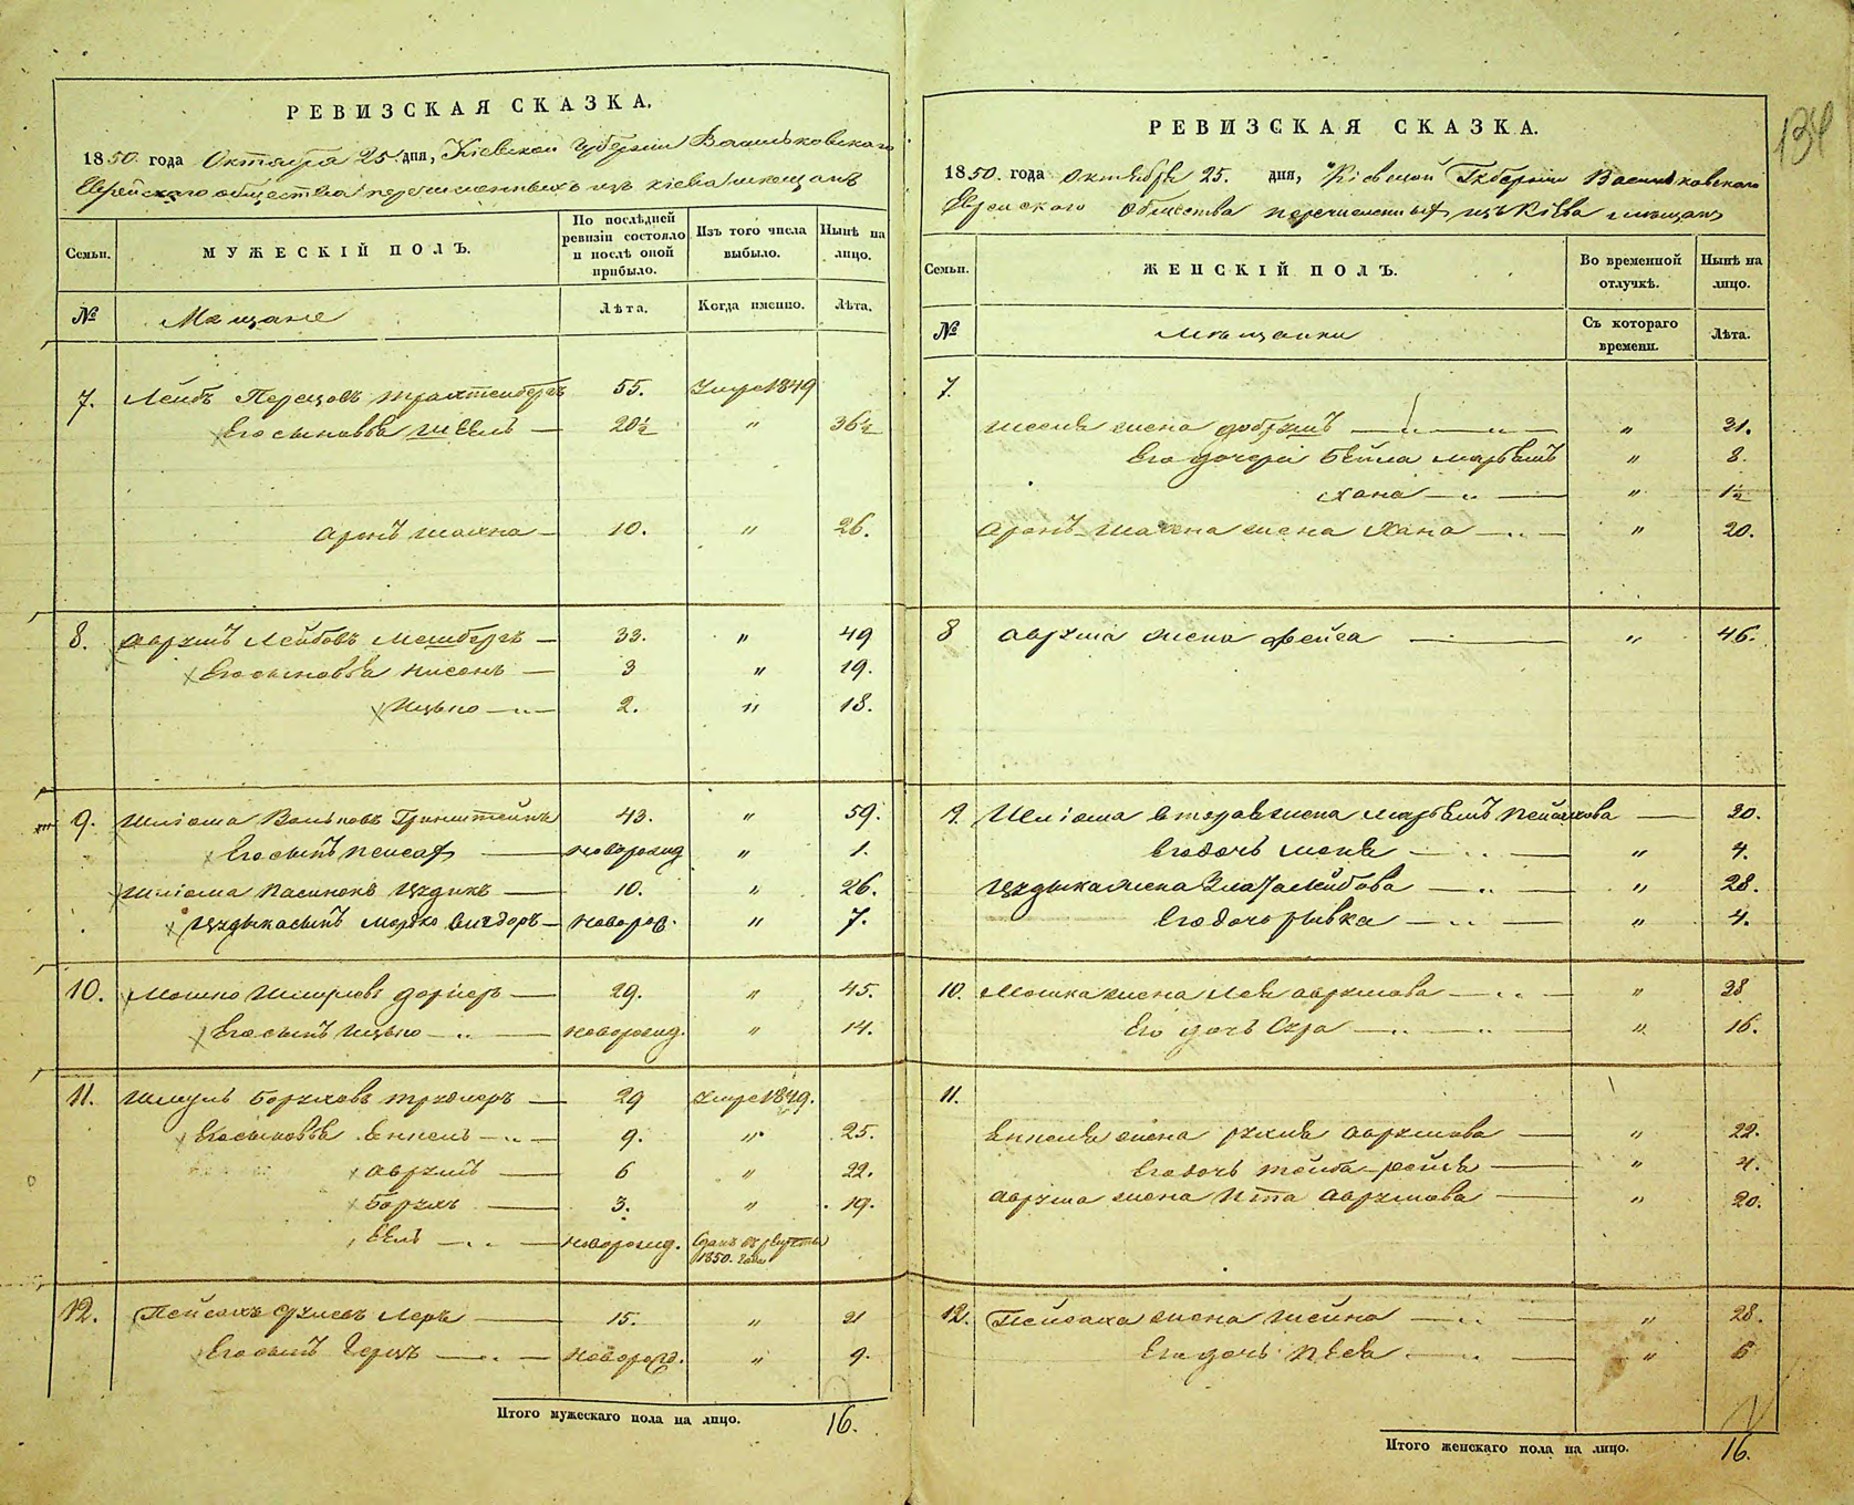 РЕВИЗСКАЯ СКАЗКА.
1850. года Октября 25. дня, Кіевской Губерніи Васильковскаго
Еврейскаго общества перечисленныхъ изъ Кіева мещанъ
Семьи.
МУЖЕСКІЙ ПОЛЪ.
По послѣдней ревизіи состояло и послѣ оной прибыло.
Изъ того числа выбыло.
Нынѣ на лицо.
№
Мещане
Лѣта.
Когда именно.
Лѣта.
7. Лейбъ Перецовъ Трахтенбергъ 55. Умре 1849
Его сыновья 20½ " 36½
Аронъ Шахна 10. " 26.
8. Аврумъ Лейбовъ 33. " 49
Его сыновья Нисонъ 3 " 19.
Ицько 2. " 18.
9. Шліома Вольковъ Гринштейнъ 43. " 59.
Его сынъ Пейсах новорожд " 1.
Шліома пасынокъ 10. " 26.
сынъ Мортко новорож. " 7.
10. Мошко 29. " 45.
Его сынъ Ицько новорожд. " 14.
11. Шмуль Боруховъ 29 Умре 1849.
Его сыновья Янкель 9. " 25.
Аврумъ 6 " 22.
Борухъ 3. " 19.
новорожд. Сданъ въ рекруты 1850. года
12. Пейсахъ 15. " 21
Его сынъ Герцъ новорожд. " 9.
Итого мужескаго пола на лицо. 16.
134
РЕВИЗСКАЯ СКАЗКА.
1850. года Октября 25. дня, Кіевской Губерніи Васильковскаго
Еврейскаго Общества перечисленных изъ Кіева мещанъ
Семьи.
ЖЕНСКІЙ ПОЛЪ.
Во временной отлучкѣ.
Нынѣ на лицо.
№
Мещанки
Съ котораго времени.
Лѣта.
7.
жена " 31.
Его дочери Бейла " 8.
Хана " 1½
Аронъ Шахна жена Хана " 20.
8 Аврума жена Фейга " 46.
9. Шліома вторая жена 20.
Его дочь " 4.
жена Злата Лейбова " 28.
Его дочь Рывка " 4.
10. Мошка жена Лея Аврумова " 38
Его дочь Сура " 16.
11.
Янкеля жена Рухля Аврумова " 22.
Его дочь Тойба Рейзя " 4.
Аврума жена Ита Аврумова " 20.
12. Пейсаха жена Шейна " 28.
Его дочь Песя " 6
Итого женскаго пола на лицо. 16.